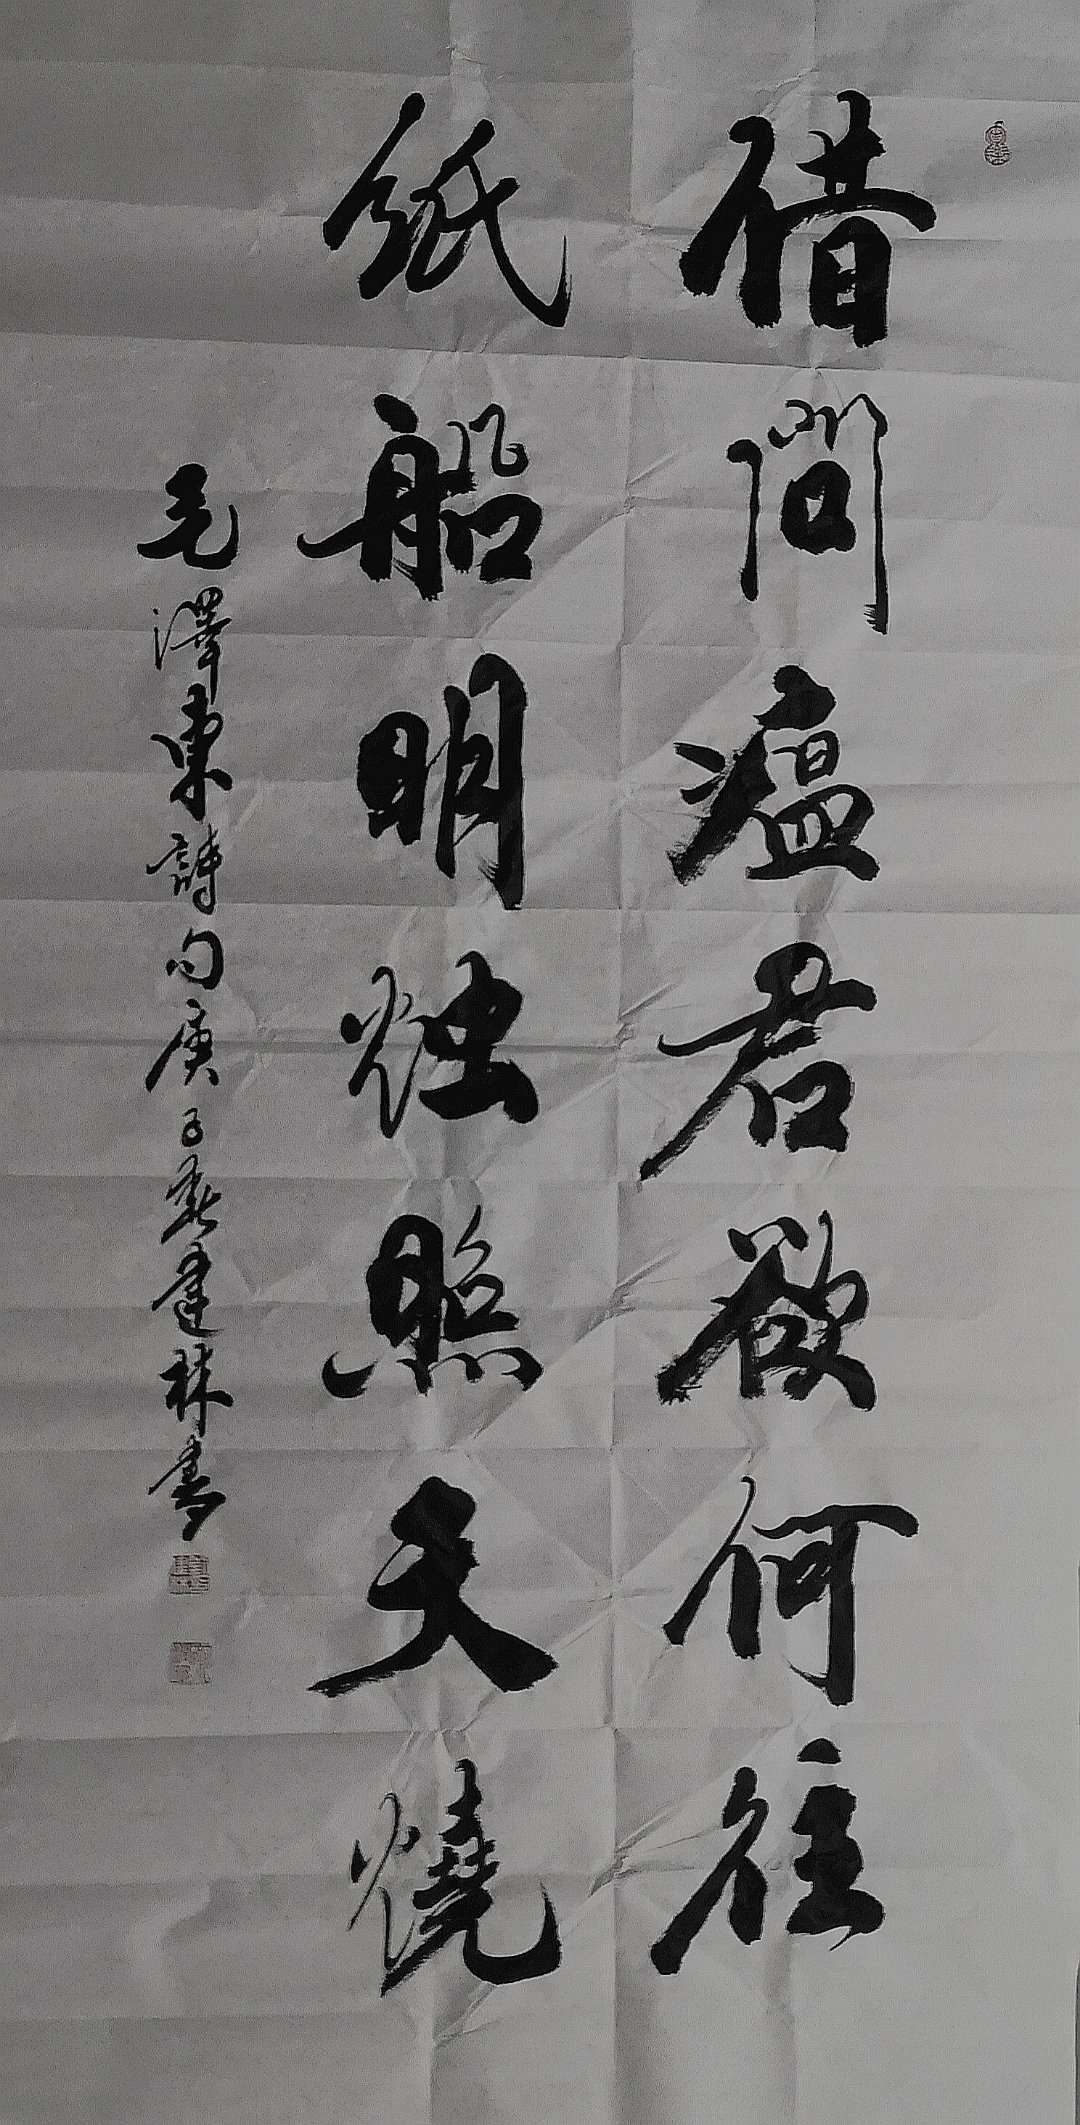 借问瘟君欲何往
纸船明烛照天燒
毛澤東詩句庚子春建林書